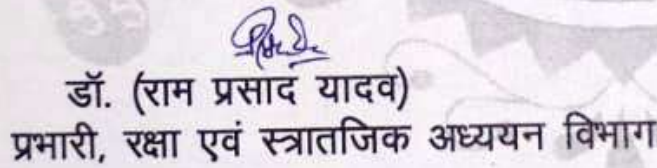 डॉ. (राम प्रसाद यादव)
प्रभारी, रक्षा एवं स्त्रातजिक अध्ययन विभाग